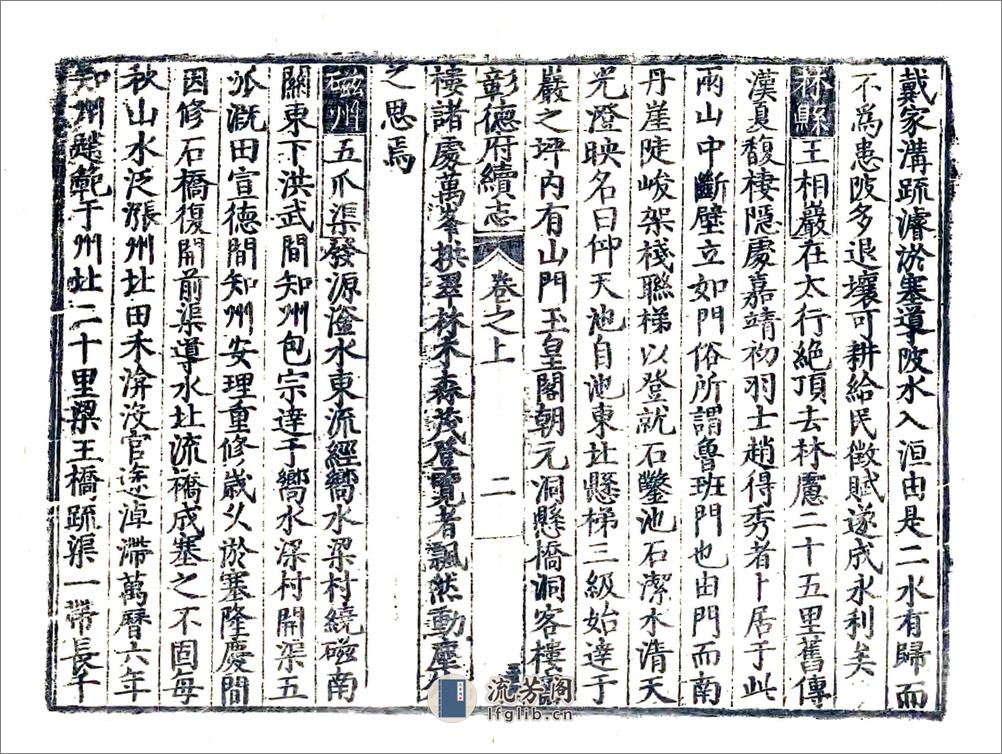 戴家溝疏濬淤塞導陂水入洹由是二水有歸而
不爲患陂多退壤可耕給民徵賦遂成永利矣
林縣王相巖在太行絶頂去林慮二十五里舊傳
漢夏馥棲隱處嘉靖初羽士趙得秀者卜居于此
兩山中斷壁立如門俗所謂魯班門也由門而南
丹崖陡峻架棧聯梯以登就石鑿池石潔水清天
光澄映名曰仰天池自池東北懸梯三級始達于
巖之坪內有山門玉皇閣朝元洞懸橋洞客樓
彰德府續志 卷之上 二
樓諸處萬峯拱翠林木森茂登覽者飄然動塵外
之思焉
磁州五爪渠發源滏水東流經嚮水梁村繞磁南
關東下洪武間知州包宗達于嚮水梁村開渠五
派溉田宣德間知州安理重修歲久淤塞隆慶間
因修石橋復開前渠導水北流橋成塞之不固每
秋山水泛漲州北田禾渰没官途淖滯萬曆六年
知州趙範于州北二十里梁王橋疏渠一帶長千
流芳阁
lfglib.cn